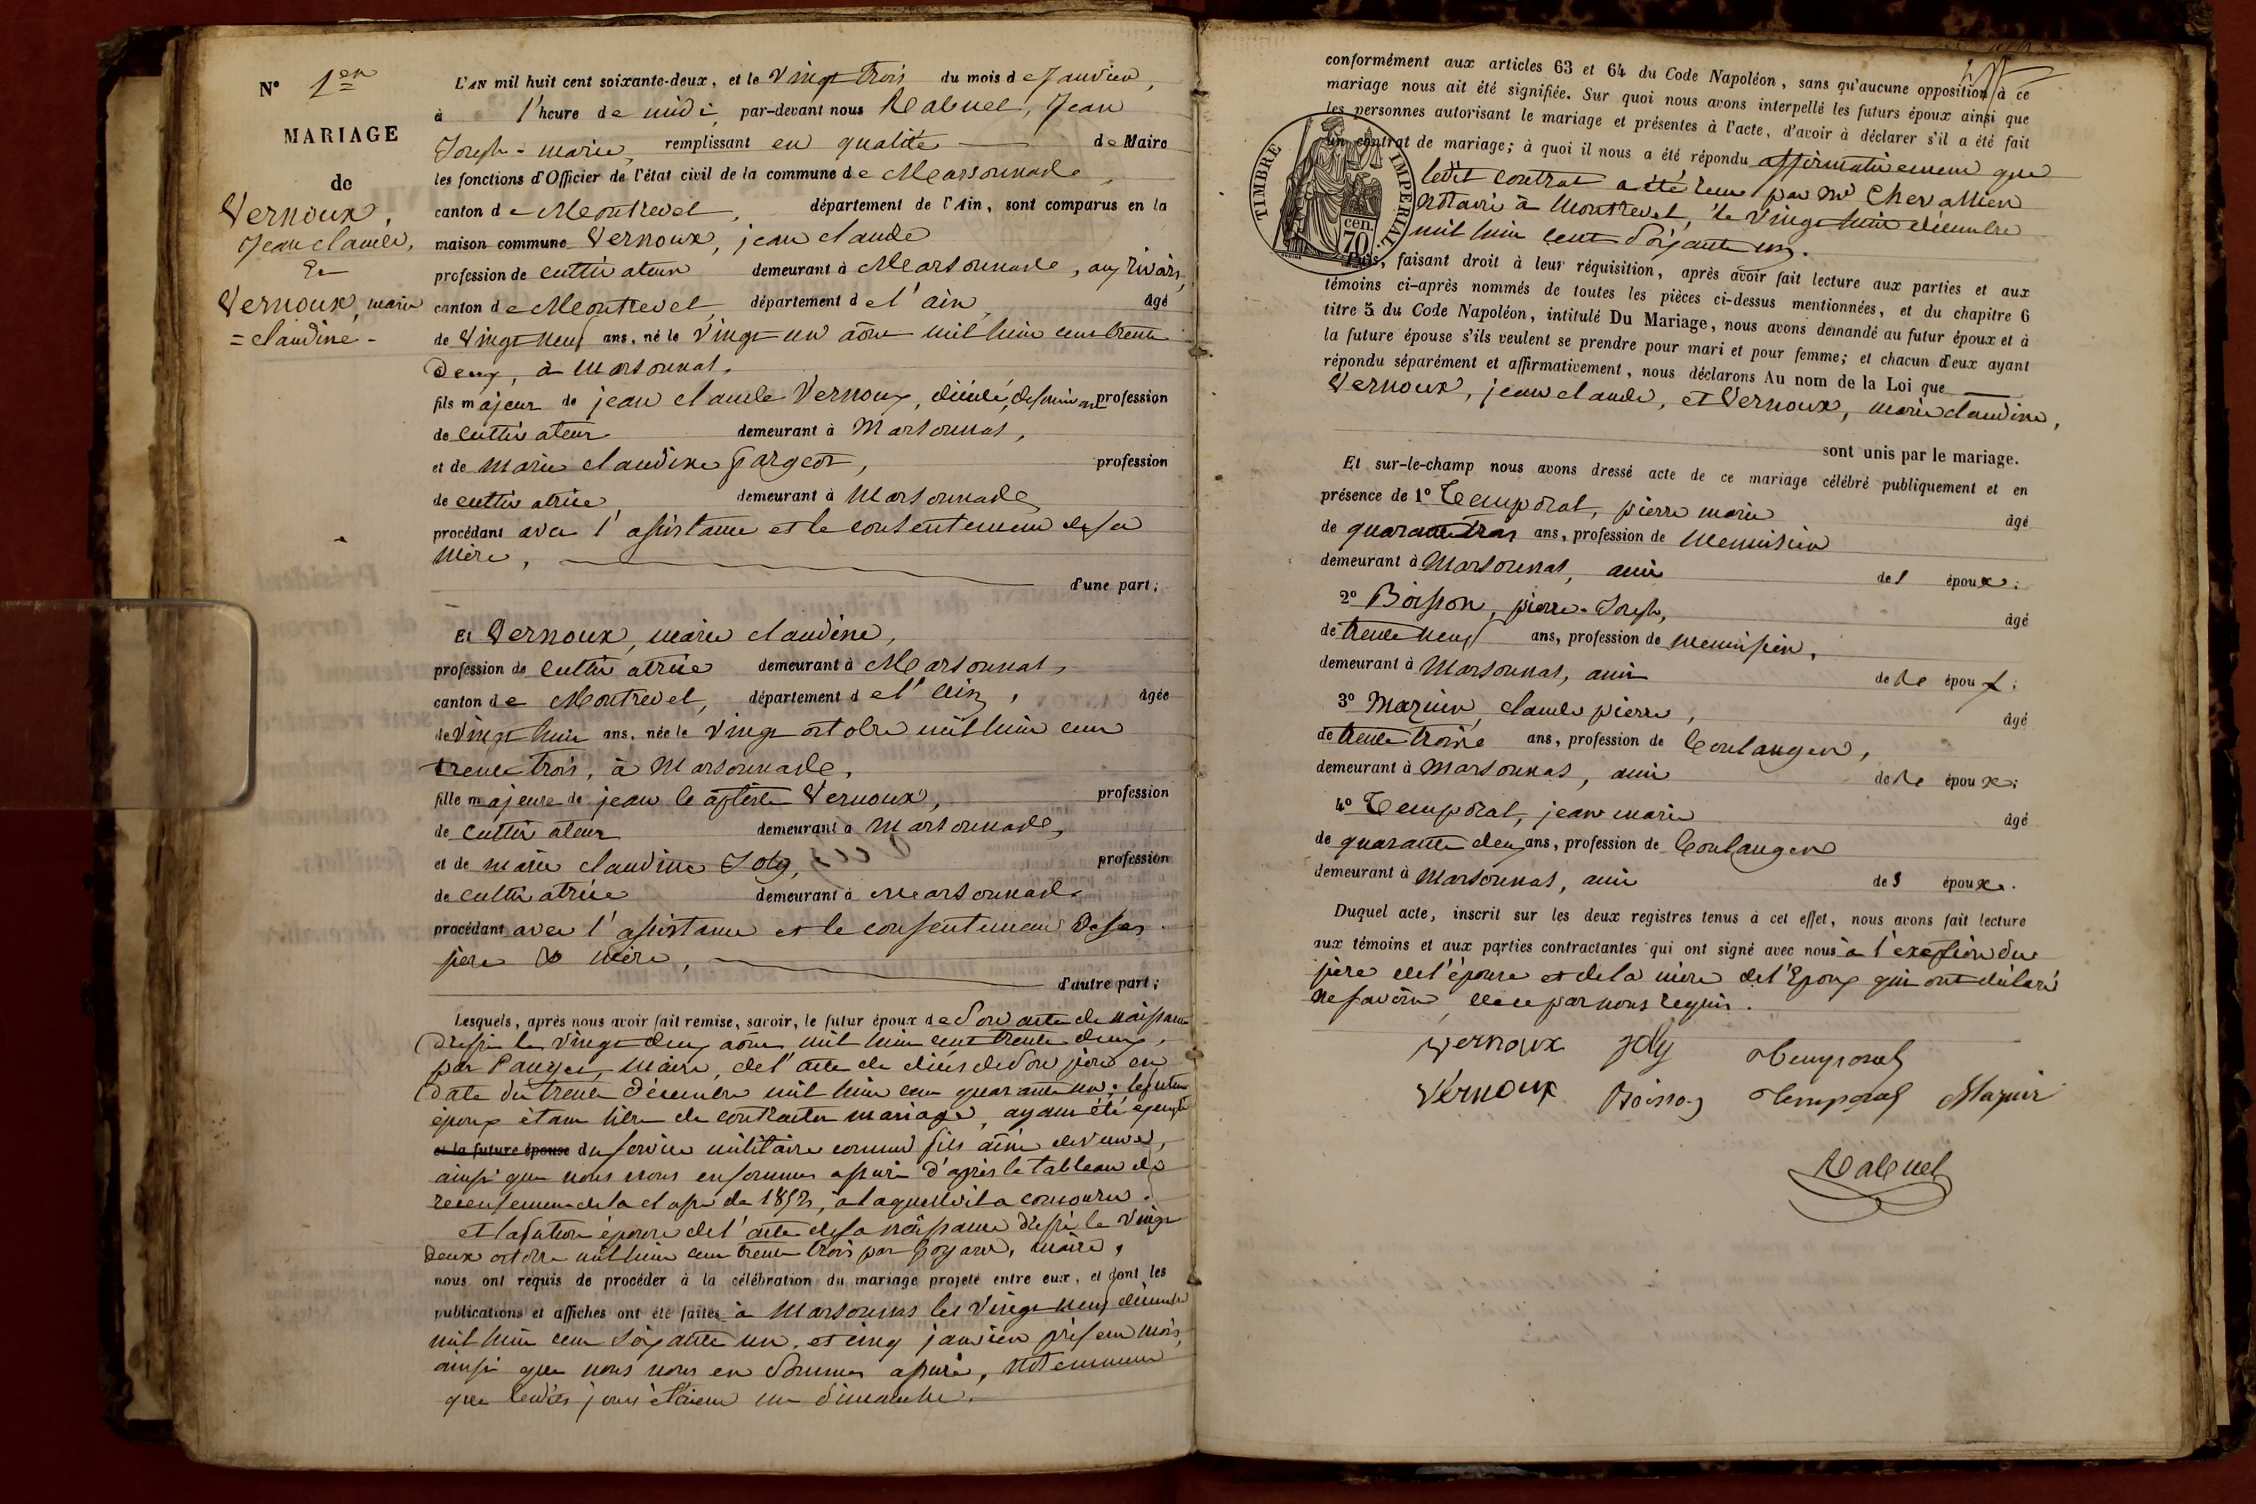 N° 1er
MARIAGE
de
Vernoux,
Jean claude,
Et
Vernoux, marie
= claudine -
L'AN mil huit cent soixante-deux, et le Vingt trois du mois de Janvier,
à l'heure de midi, par-devant nous Rabuel, Jean
Joseph = marie, remplissant en qualité de Maire
les fonctions d'Officier de l'état civil de la commune de Marsonnas,
canton de Montrevel, département de l'Ain, sont comparus en la
maison commune Vernoux, jean claude
profession de cultivateur demeurant à Marsonnas, aux rivons,
canton de Montrevel, département de l'ain, âgé
de Vingt neuf ans, né le Vingt un août mil huit cent trente
Deux, à Marsonnas,
fils majeur de jean claude Vernoux, décédé, de son vivant profession
de cultivateur demeurant à Marsonnas,
et de marie claudine Pargeot, profession
de cultivatrice demeurant à Marsonnas,
procédant avec l'assistance et le consentement de sa
mère, d'une part;
Et Vernoux, marie claudine,
profession de cultivatrice demeurant à Marsonnas,
canton de Montrevel, département de l'ain, âgée
de Vingt huit ans, née le Vingt octobre mil huit cent
trente trois, à Marsonnas,
fille majeure de jean baptiste Vernoux, profession
de cultivateur demeurant à Marsonnas,
et de marie claudine Joly, profession
de cultivatrice demeurant à Marsonnas
procédant avec l'assistance et le consentement De ses
père & mère, d'autre part;
Lesquels, après nous avoir fait remise, savoir, le futur époux de Son acte de naissance
Dressé le Vingt deux août mil huit cent trente deux,
par Pauget, maire, de l'acte de décès de Son père en
Date du trente Décembre mil huit cent quarante un; le futur
époux étant libre de contracter mariage, ayant été exempté
et la future épouse du service militaire comme fils aîné de veuve,
ainsi que nous nous en sommes assuré d'après le tableau de
recensement de la classe de 1852, à laquelle il a concouru.
et la future épouse de l'acte de sa naissance Dressé le Vingt
Deux octobre mil huit cent trente trois par Goyard, maire,
nous ont requis de procéder à la célébration du mariage projeté entre eux, et dont les
publications et affiches ont été faites à Marsonnas les Vingt neuf décembre
mil huit cent Soixante un, et cinq janvier présent mois,
ainsi que nous nous en Sommes assuré, notamment
que lesdits jours étaient un Dimanche.
conformément aux articles 63 et 64 du Code Napoléon, sans qu'aucune opposition à ce
mariage nous ait été signifiée. Sur quoi nous avons interpellé les futurs époux ainsi que
les personnes autorisant le mariage et présentes à l'acte, d'avoir à déclarer s'il a été fait
un contrat de mariage; à quoi il nous a été répondu affirmativement que
TIMBRE IMPÉRIAL
70 cen.
ledit contrat a été reçu par Me Chevallier
Notaire à Montrevel, le Vingt huit décembre
mil huit cent Soixante un.
Puis, faisant droit à leur réquisition, après avoir fait lecture aux parties et aux
témoins ci-après nommés de toutes les pièces ci-dessus mentionnées, et du chapitre 6
titre 5 du Code Napoléon, intitulé Du Mariage, nous avons demandé au futur époux et à
la future épouse s'ils veulent se prendre pour mari et pour femme; et chacun d'eux ayant
répondu séparément et affirmativement, nous déclarons Au nom de la Loi que
Vernoux, jean claude, et Vernoux, marie claudine,
sont unis par le mariage.
Et sur-le-champ nous avons dressé acte de ce mariage célébré publiquement et en
présence de 1° Temporal, pierre marie âgé
de quarante trois ans, profession de Menuisier
demeurant à Marsonnas, ami des époux;
2° Boisson, pierre-Joseph, âgé
de trente neuf ans, profession de menuisier,
demeurant à Marsonnas, ami
3° Mazuir, claude pierre, âgé
de trente trois ans, profession de Boulanger,
demeurant à Marsonnas, ami
4° Temporal, jean marie âgé
de quarante deux ans, profession de Boulanger
demeurant à Marsonnas, ami des époux.
Duquel acte, inscrit sur les deux registres tenus à cet effet, nous avons fait lecture
aux témoins et aux parties contractantes qui ont signé avec nous à l'exeption du
père de l'épouse et de la mère de l'Epoux qui ont déclaré
ne savoir, de ce par nous requis.
Vernoux Joly Temporal
Vernoux Boisson Temporal Mazuir
Rabuel